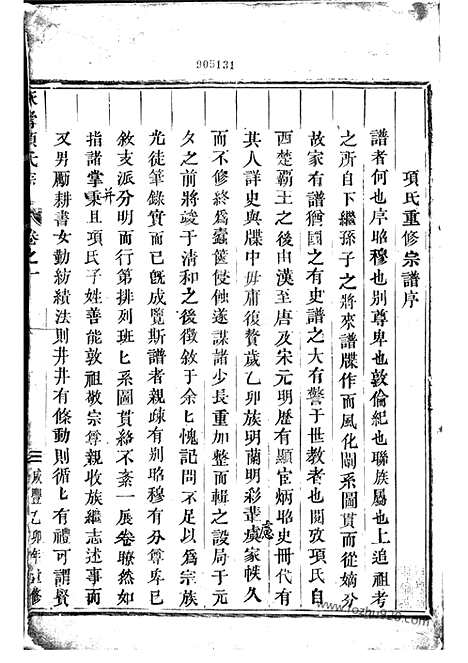 905131
項氏重修宗譜序
譜者何也序昭穆也别尊卑也敦倫紀也聯族屬也上追祖考
之所自下繼孫子之將來譜牒作而風化關系圖貫而從嫡分
故家有譜猶國之有史譜之大有警于世教者也閱攷項氏自
西楚霸王之後由漢至唐及宋元明歷有顯宦炳昭史冊代有
其人詳史與牒中毋庸復贅歲乙卯族明蘭明彩輩慮家帙久
而不修終為蠹篋侵蝕遂謀諸少長重加整而輯之設局于元
夕之前將竣于清和之後徵敘于余匕愧記問不足以為宗族
光徒筆錄實而已旣成覽斯譜者親疎有别昭穆有分尊卑已
敘支派分明而行第排列班匕系圖貫絡不紊一展卷瞭然如
指諸掌並且項氏子姓善能敦祖敬宗尊親收族繼志述事而
又男勵耕書女勤紡績法則井井有條動則循匕有禮可謂賢
項氏宗
卷之一
咸豐乙卯年重修
www.fozhu920.com